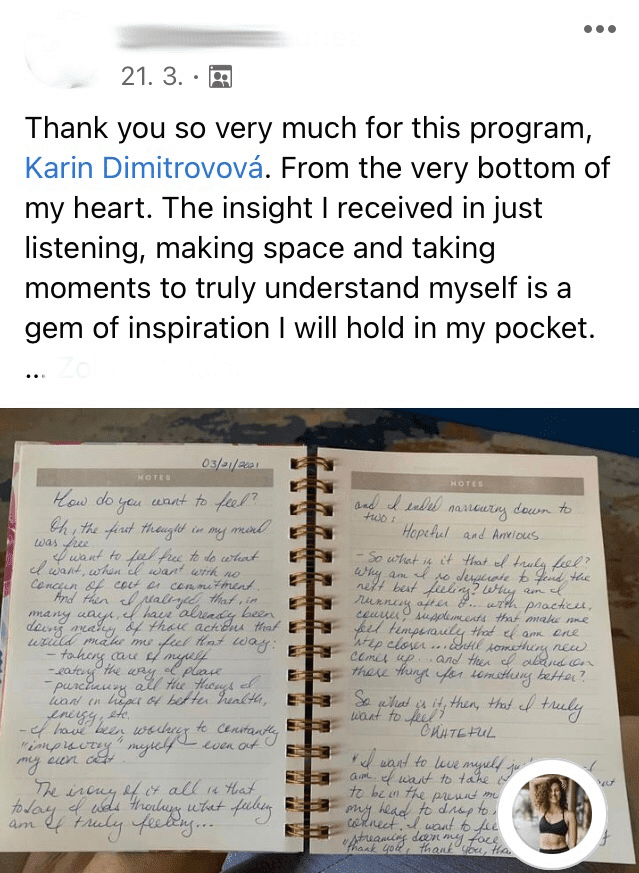 21. 3.
Thank you so very much for this program,
Karin Dimitrovová. From the very bottom of
my heart. The insight I received in just
listening, making space and taking
moments to truly understand myself is a
gem of inspiration I will hold in my pocket.
...
03/21/2021
NOTES
How do you want to feel?
Oh, the first thought in my mind
was free
I want to feel free to do what
I want, when I want with no
concern of cost or committment.
And then I realized that, in
many ways, I have already been
doing many of those actions that
would make me feel that way:
- taking care of myself
- eating the way I please
- purchasing all the things I
want in hopes of better health,
energy, etc.
- I have been working to constantly
"improving" myself - even at
my own cost.
The irony of it all is that
today I was thinking what feeling
am I truly feeling...
NOTES
and I ended narrowing down to
two:
Hopeful and Anxious
- So what is it that I truly feel?
Why am I so desperate to find the
next best feeling? Why am I
running after it... with practices,
courses, supplements that make me
feel temporarily that I am one
step closer... until something new
comes up... and then I abandon
those things for something better?
So what is it, then, that I truly
want to feel?
GRATEFUL
* I want to love myself
I want to take
to be in the present
my head to drop to
connect. I want to
streaming down my face
"thank you, thank you,